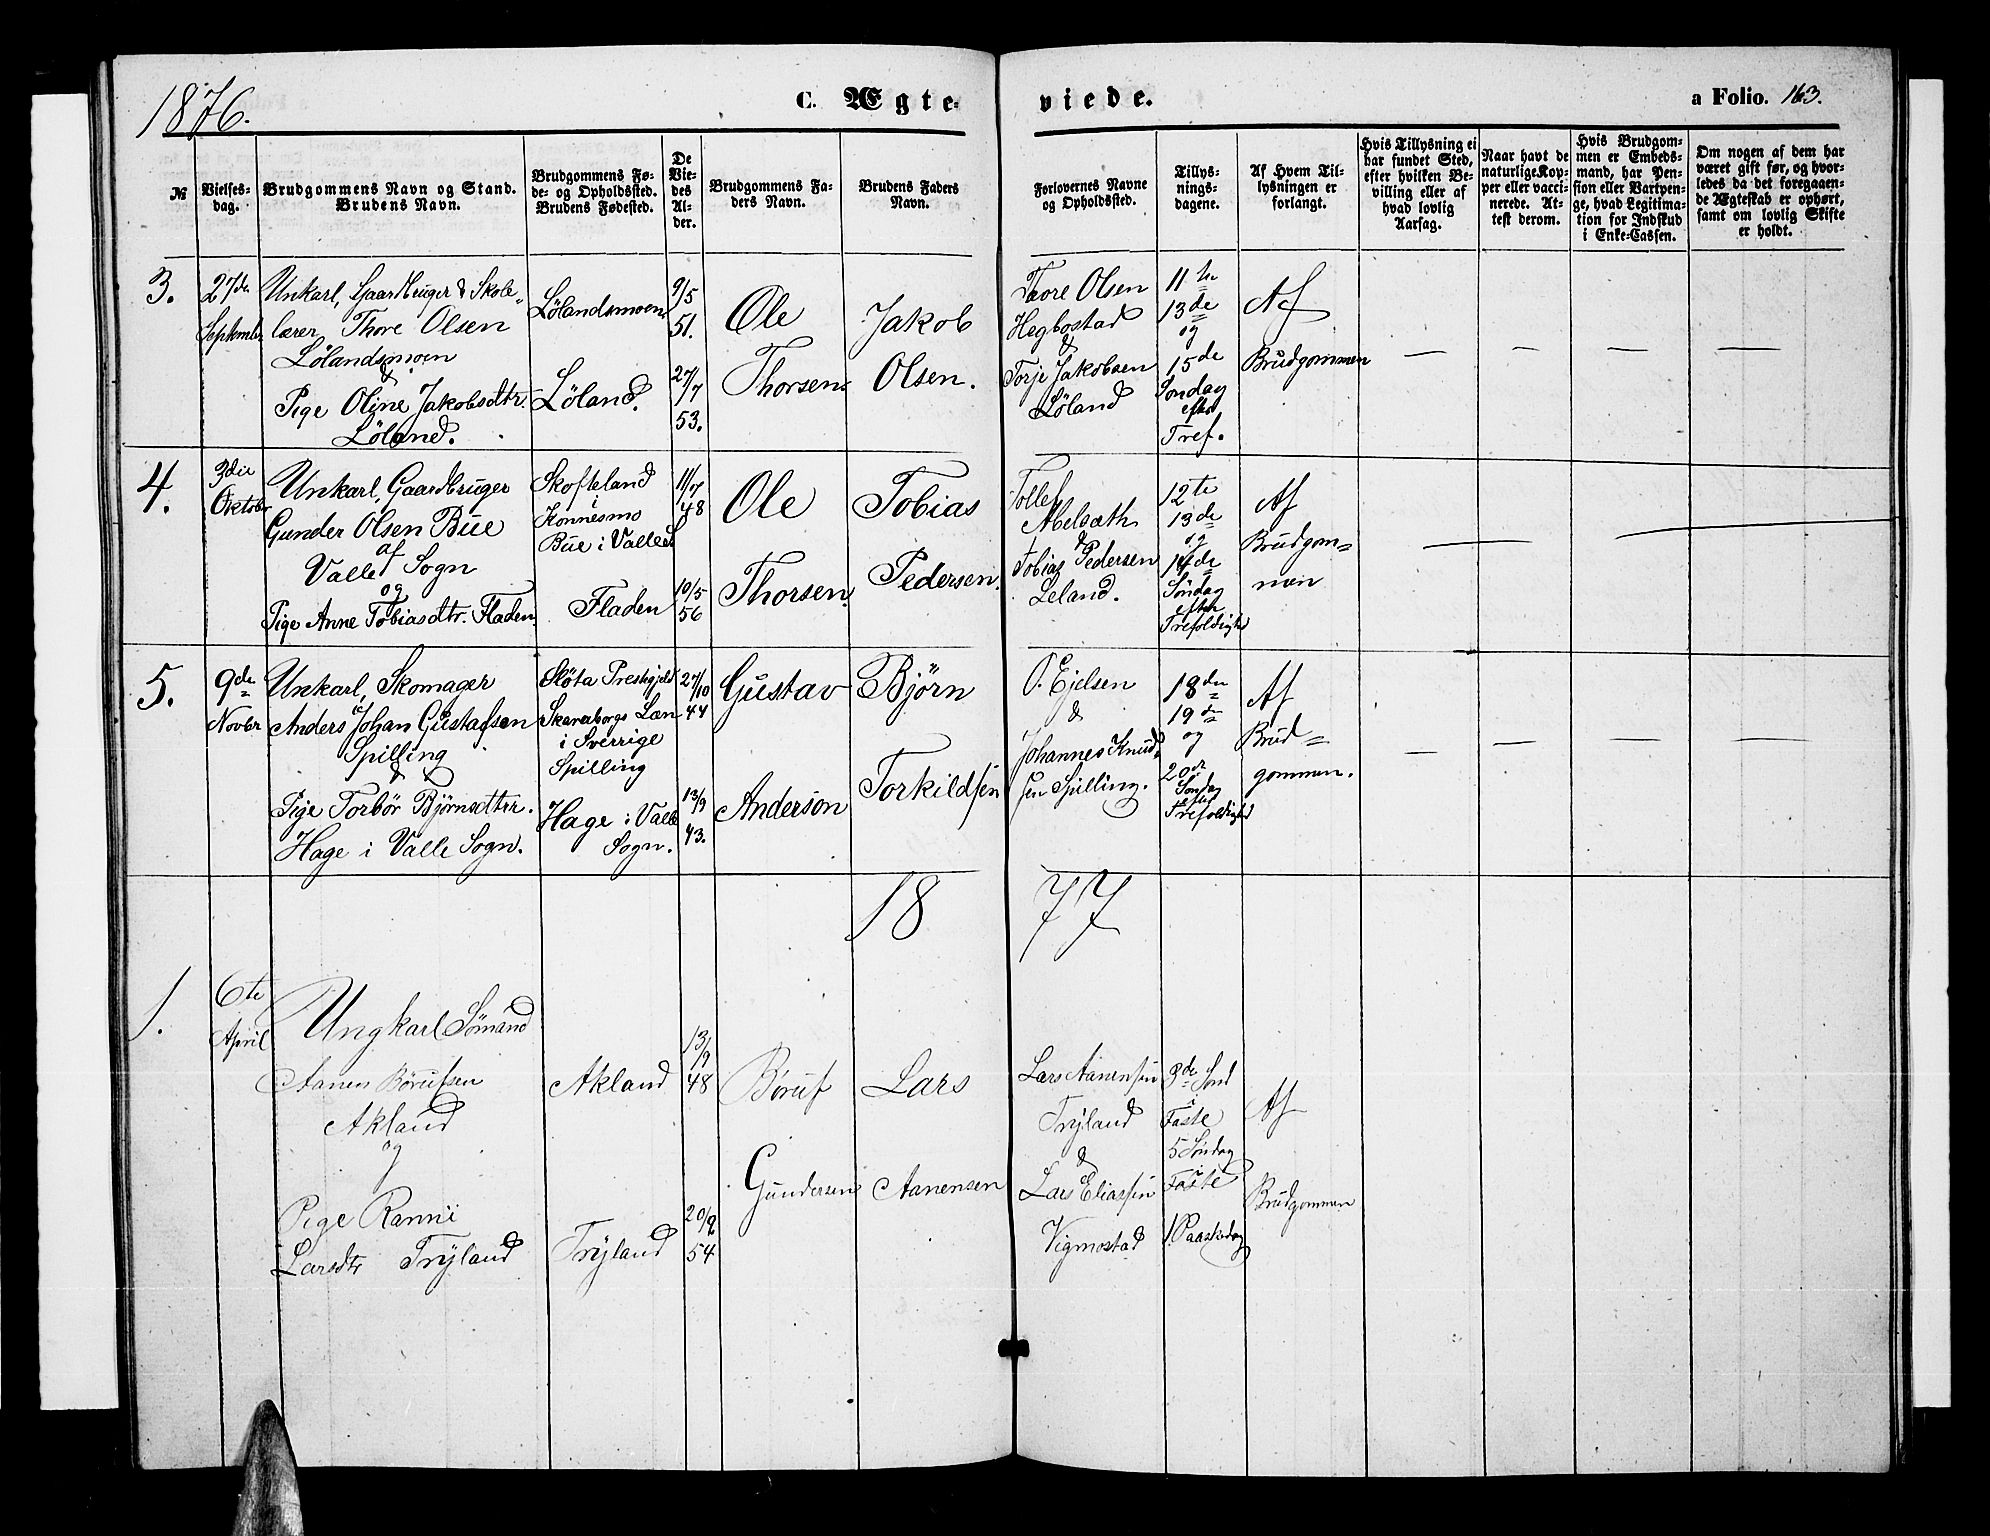 1876.
C. Ægte-
viede.
a Folio. 163.
№
Vielses-
dag.
Brudgommens Navn og Stand.
Brudens Navn.
Brudgommens Fø-
de- og Opholdssted.
Brudens Fødested.
De
Vie-
des
Al-
der.
Brudgommens Fa-
ders Navn.
Brudens Faders
Navn.
Forlovernes Navne
og Opholdssted.
Tillys-
nings-
dagene.
Af Hvem Til-
lysningen er
forlangt.
Hvis Tillysning ei
har fundet Sted,
efter hvilken Be-
villing eller af
hvad lovlig
Aarsag.
Naar havt de
naturlige Kop-
per eller vacci-
nerede. At-
test derom.
Hvis Brudgom-
men er Embeds-
mand, har Pen-
sion eller Vartpen-
ge, hvad Legitima-
tion for Indskud
i Enke-Cassen.
Om nogen af dem har
været gift før, og hvor-
ledes da det foregaaen-
de Ægteskab er ophørt,
samt om lovlig Skifte
er holdt.
3.
27de
Septembr
Unkarl, Gaardbruger & Skole-
lærer, Thore Olsen
Lölandsmoen
&
Pige Oline Jakobsdtr.
Löland.
Lölandsmoen
Löland.
9/5
51.
27/7
53.
Ole
Thorsen
Jakob
Olsen.
Taore Olsen
Hegbostad
&
Torje Jakobsen
Löland
11te
13de
og
15de
Söndag
efter
Tref.
Af
Brudgommen
4.
3die
Oktober
Unkarl, Gaardbruger
Gunder Olsen Bue
af
Valle Sogn
og
Pige Anne Tobiasdtr. Fladen
Skofteland
i
Konnesmo
Bue i Valle S
Fladen
11/7
48
10/5
56
Ole
Thorsen.
Tobias
Pedersen.
Tollef
Abelsæth
&
Tobias Pedersen
Leland.
12te
13de
og
14de
Söndag
efter
Trefoldighd
Af
Brudgom=
men
5.
9de
Novbr
Unkarl, Skomager
Anders Johan Gustafsen
Spilling
&
Pige Torbör Björnsdttr.
Hage i Valle Sogn.
Slöta Prestgjeld
Skaraborgs Læn
i Sverrige
Spilling
Hage i Valle
Sogn.
27/10
44
13/9
43.
Gustav
Anderson
Björn
Torkildsen
O. Ejelsen
&
Johannes Knud-
sen Spilling.
18de
19de
og
20de
Söndag
efter
Trefoldighd
Af
Brud=
gommen.
18 77
1.
6te
April
Ungkarl Sömand
Aanen Börufsen
Akland
og
Pige Ranni
Larsdtr Tryland
Akland
Tryland
13/9
48
20/2
54
Böruf
Gundersen
Lars
Aanensen
Lars Aanensen
Tryland
&
Lars Eliassen
Vigmostad
3de Sönd
i
Faste
5 Söndag
i
Faste
1. Paaskedag
Af
Brudgommen